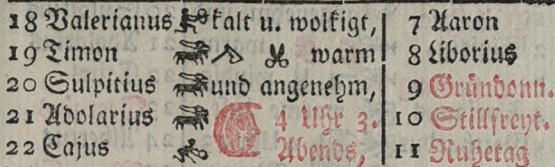 18 Valerianus kalt u. wolkigt, 7 Aaron
19 Timon warm 8 Liborius
20 Sulpitius und angenehm, 9 Gründonn.
21 Adolarius 4 Uhr 3. 10 Stillfreyt.
22 Cajus Abends, 11 Ruhetag